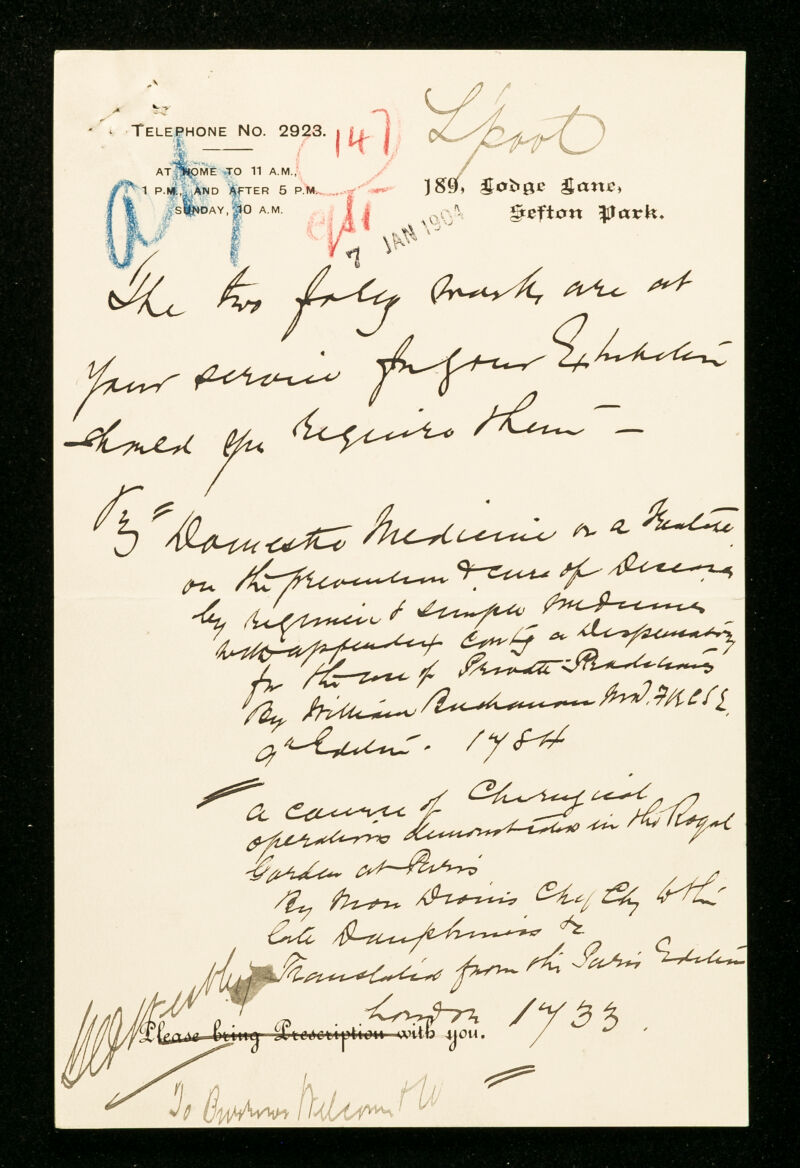 TELEPHONE No. 2923.
AT HOME TO 11 A.M.,
1 P.M., AND AFTER 5 P.M.
SUNDAY, 10 A.M.
147
L'pool
189, Lodge Lane,
Sefton Park.
7 JAN 1904
The two folg works are at
your service for your Exhibition
should you require them —
Domestic Medicine or a Treatise
on the prevention & cure of Diseases
by regimen & simple medicines
with appendix contg a Dispensatory
for the use of Private Practitioners
By William Buchanan MD. FRCSE.
9th Edition. 1784
a course of Chirugical
operations demonstrated in the Royal
Garden at Paris
By Mon Dionis Chf Chg to the
late Dauphiness &c
Translated from the Paris Edition
London 1733.
Please bring Prescription with you.
To Burroughs Wellcome & Co